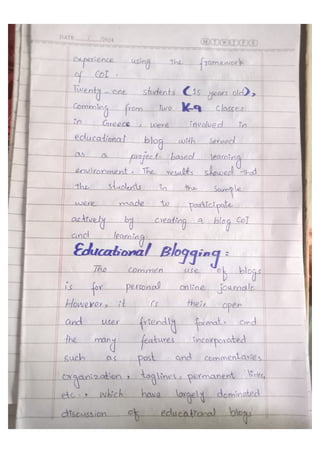 DATE
experience using the framework
of COI.
Twenty-one students (15 years old),
comming from two K-9 classes
in Greece, were involved in
educational blog with served
as a project based learning
environment. The results showed that
the students in the sample
were made to participate
actively by creating a blog COI
and learning.
Educational Blogging:
The common use of blogs
is for personal online journals
However, it is their open
and user friendly format, and
the many features incorporated
such as post and commentaries
organization, taglines, permanent links,
etc., which have largely dominated
discussion of educational blogs